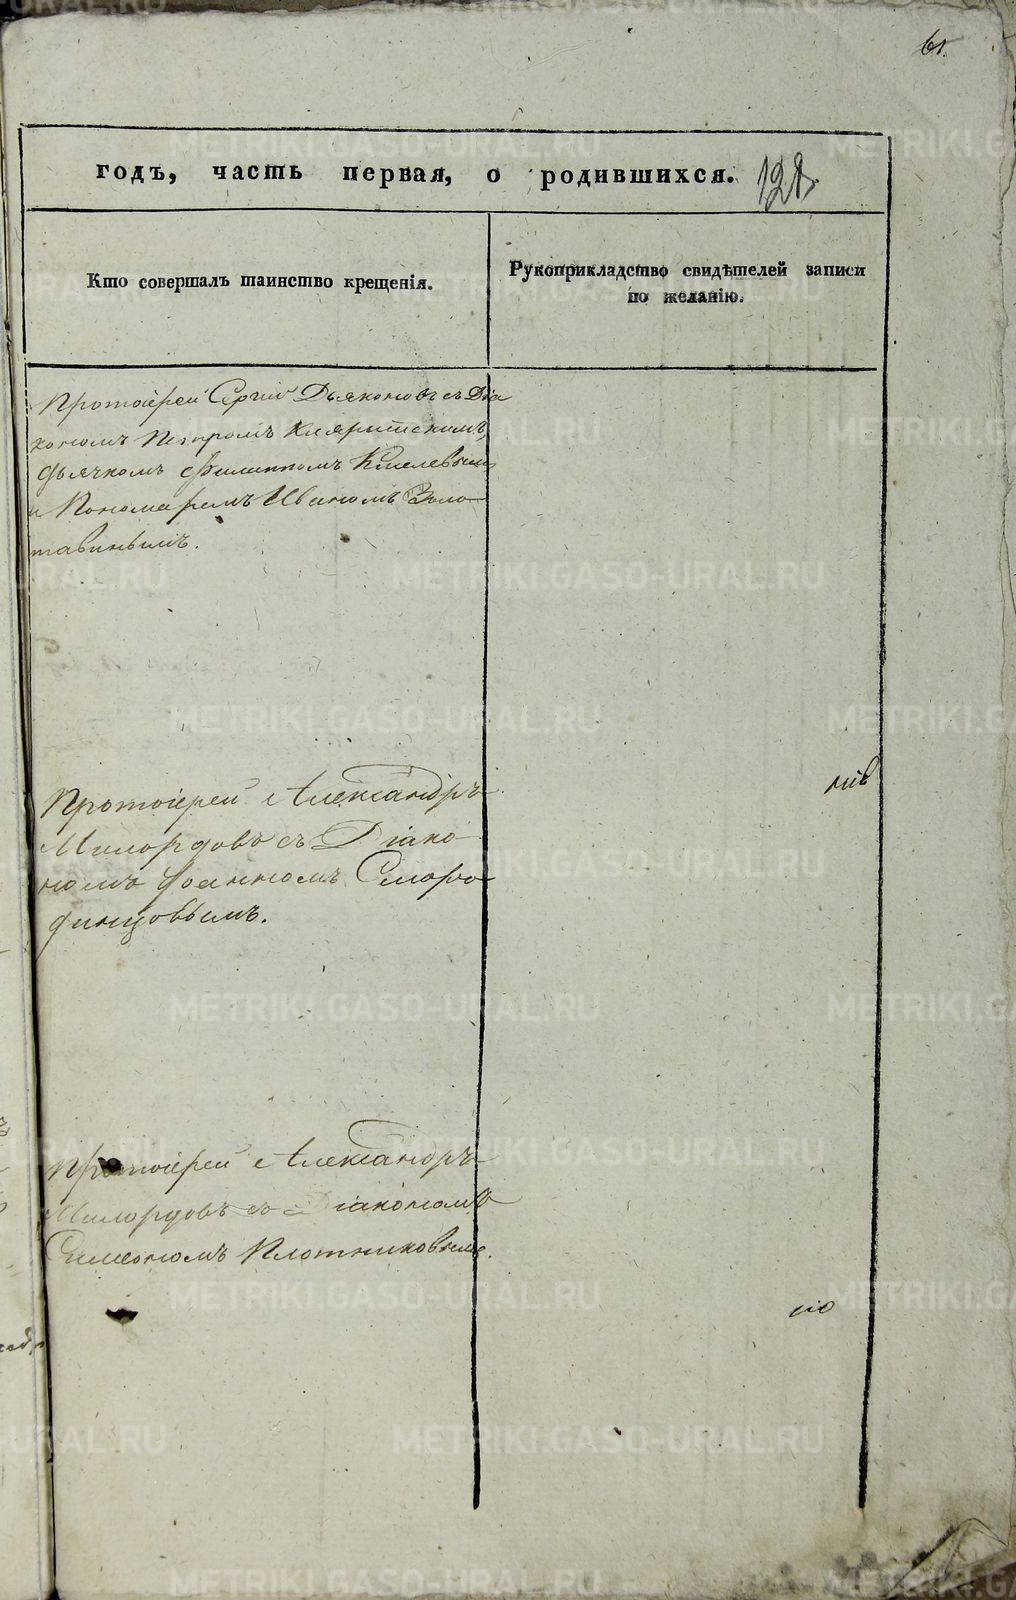 61.
годъ, часть первая, о родившихся. 128
Кто совершалъ таинство крещенія.
Рукоприкладство свидѣтелей записи
по желанію.
Протоіерей Сергій Дьяконовъ съ Діа
кономъ Петромъ
дьячкомъ Филиппомъ Киселевымъ
и Пономаремъ Иваномъ Золо
тавинымъ.
Протоіерей Александръ
Милордовъ съ Діако
номъ Іоанномъ Сморо
динцовымъ.
Протоіерей Александръ
Милордовъ съ Діакономъ
Симеономъ Плотниковымъ.
METRIKI.GASO-URAL.RU